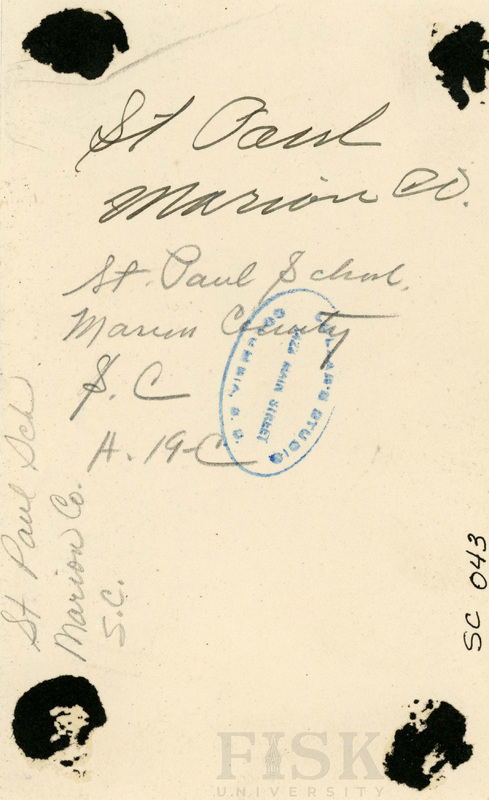 St Paul
Marion Co.
St. Paul School.
Marion County
S. C
A. 19-C
STUDIO
1423 MAIN STREET
COLUMBIA, S. C.
St Paul Sch
Marion Co.
S.C.
SC 043
FISK
UNIVERSITY